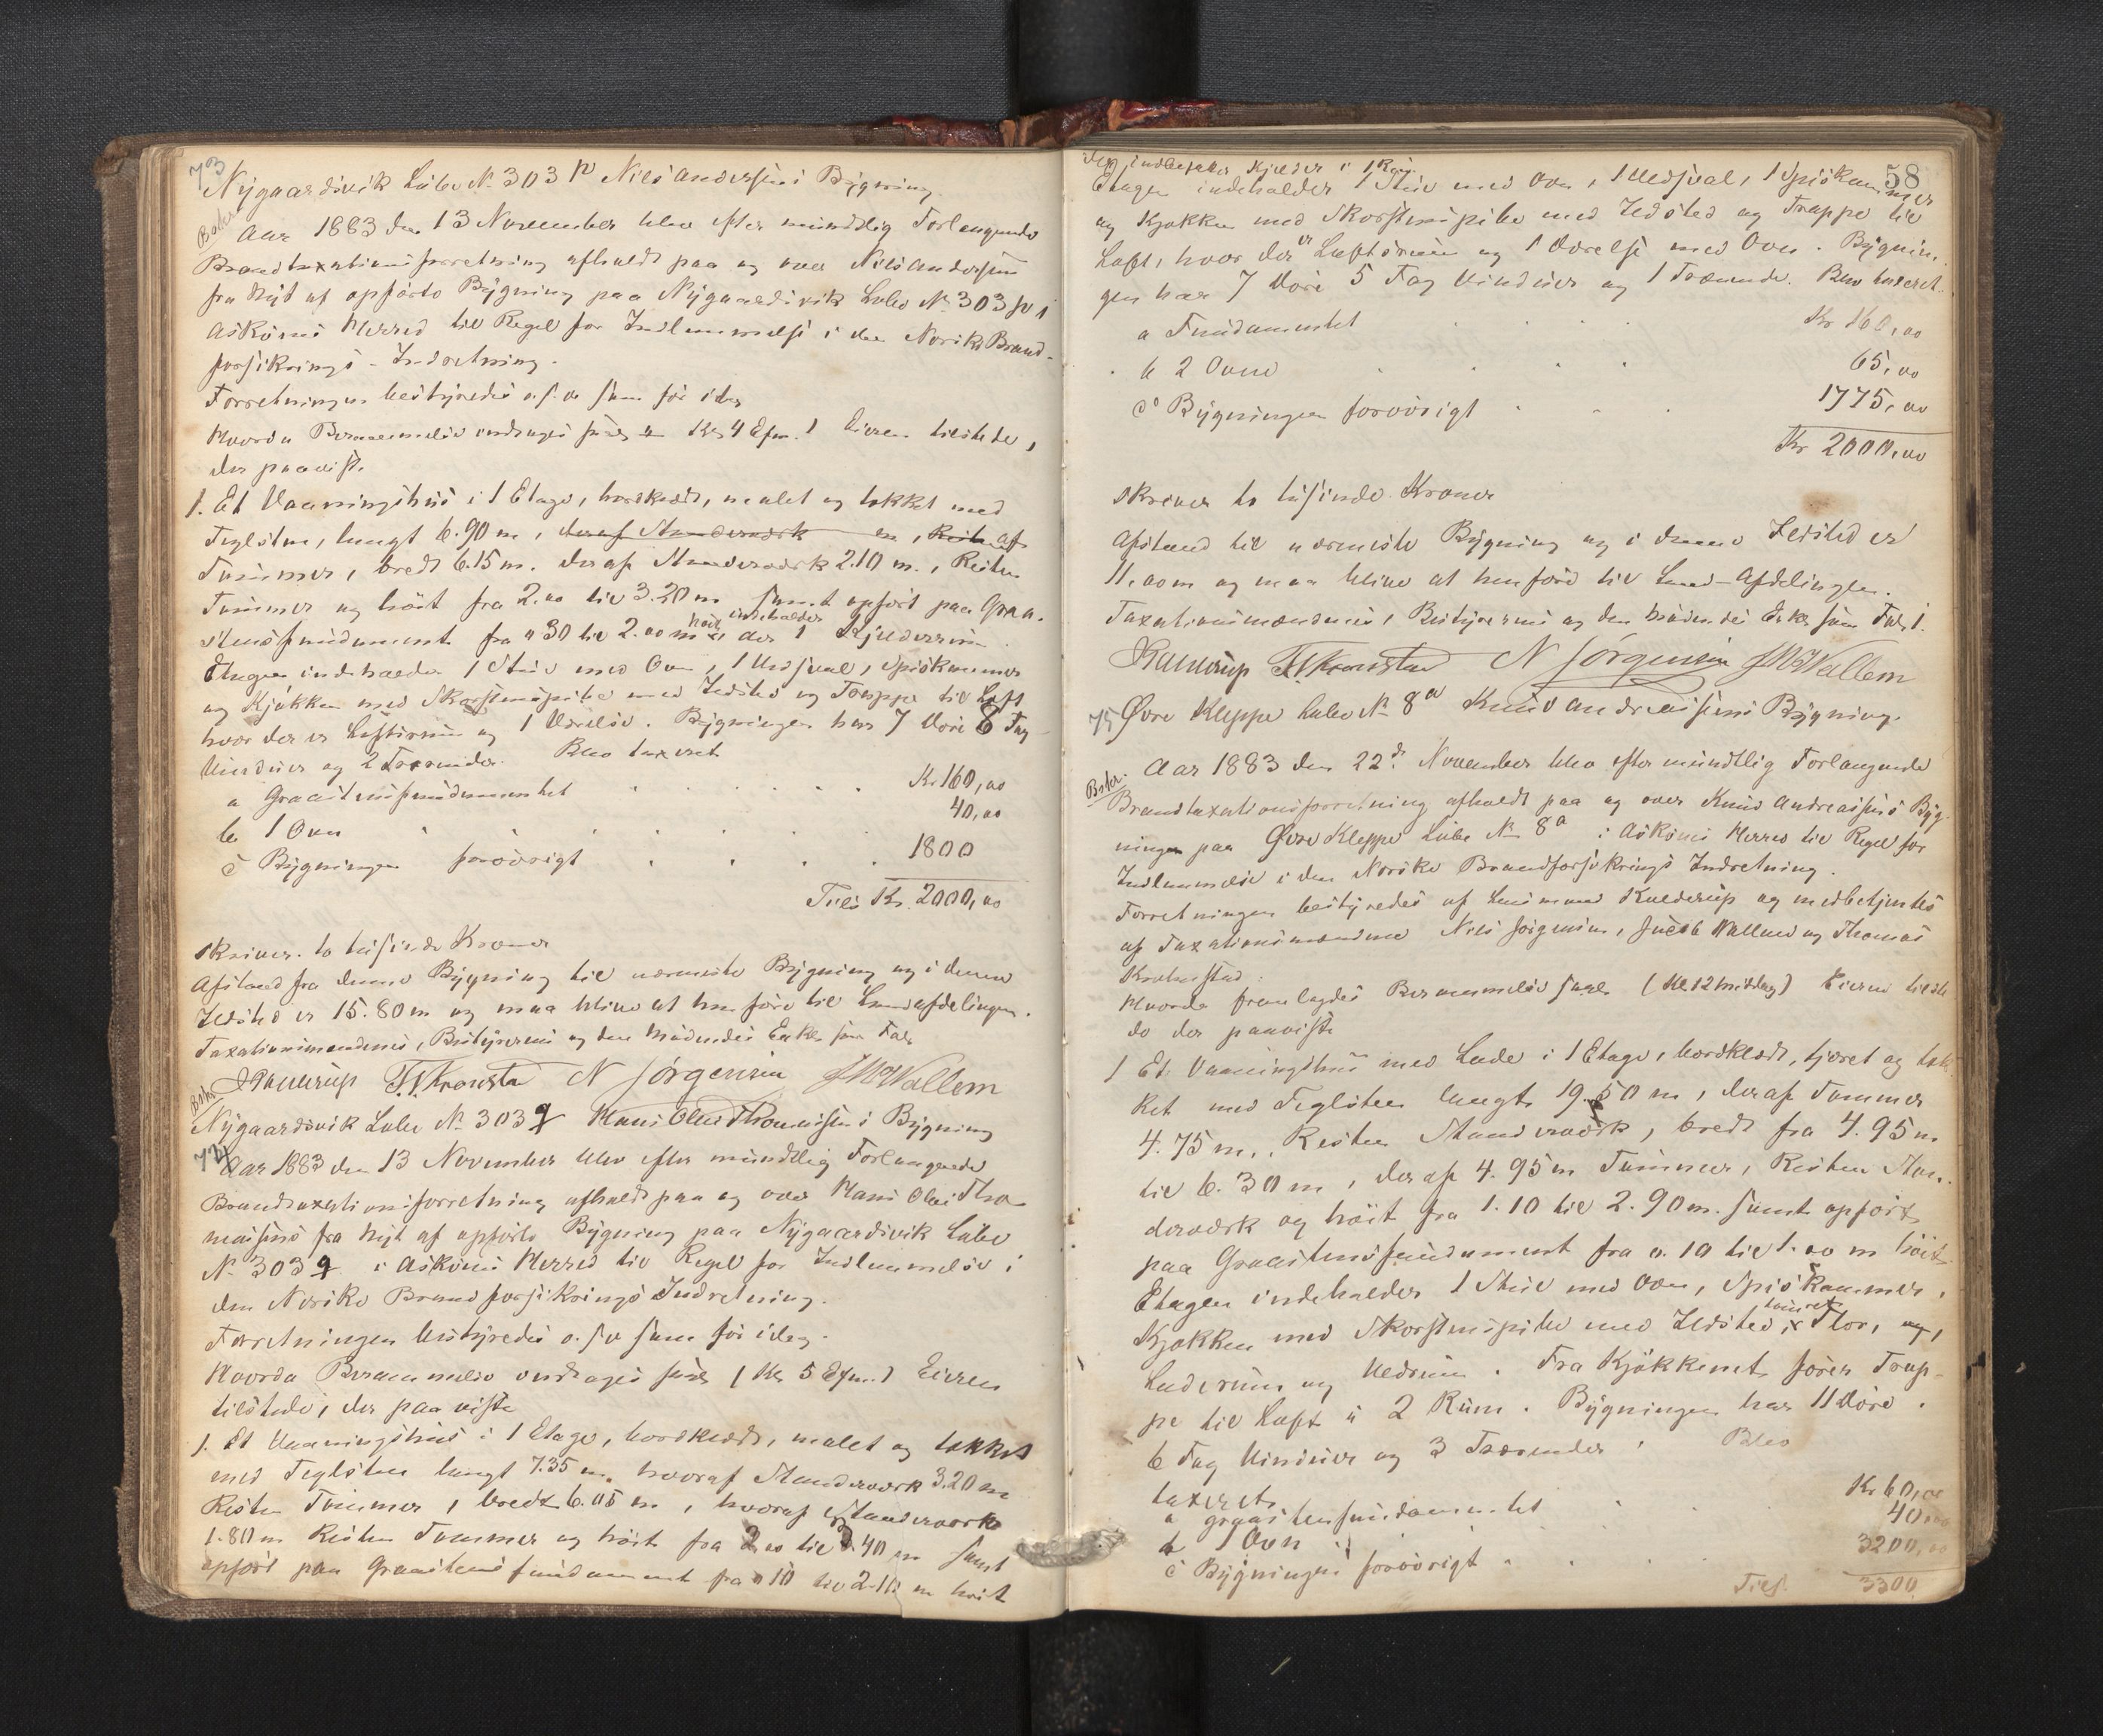 73
Nÿgaardsvik Lübe No 303 p Nils Andersens Bÿgning
Bskr.
Aar 1883 den 13 November blev efter mündtlig Forlangende
Brandtaxationsforretning afholdt paa og over Nils Andersens
fra Nÿt af opførte Bÿgning paa Nÿgaardsvik Lübe No 303 p i
Askøens Herred til Regel for Indlemmelse i den Norske Brand-
forsikrings-Indretning.
Forretningen bestÿredes o. s. v. som før idag
Hvorda Berammelse vedtoges saal. Kl. 4 Efm. Eieren tilstede,
der paaviste
1. Et Vaaningshüs i 1 Etage, bordklædt, malet og takket med
Teglsten, længt 6.90 m, deraf Standerværk m, Resten af
Tømmer, bredt 6.15 m. deraf Standerværk 2.10 m., Resten
Tømmer og høit fra 2.00 til 3.20 m samt opført paa Graa-
stensfündament fra 0.30 til 2.00 m høit indeholder der 1 Kjelderrüm
Etagen indeholder 1 Stüe med Ovn, 1 Vedsval, Spiskammer
og Kjøkken med Skorstenspibe med Ildsted og Trappe til Loft
hvor der er Loftsrüm og 1 Værelse. Bÿgningen har 7 Døre 6 Fag
Vindüer og 2 Trærender. Blev taxeret
a Graastensfündamentet Kr. 160,00
b 1 Ovn 40,00
c Bÿgningen forøvrigt 1800
Tils Kr. 2000,00
skriver to tüsinde Kroner
Afstand fra denne Bÿgning til nærmeste Bÿgning og i denne
Ildsted er 15.80 m og maa blive at henføre til Landafdelingen.
Taxationsmændenes, Bestÿrerens og den Mødendes Eeker som Før
Kulderüp T. Kronstad N Jørgensen J M Wallem
Bskr.
Nÿgaardsvik Lübe No 303 q Hans Olai Thomassens Bÿgning
74
Aar 1883 den 13 November blev efter mündtlig Forlangende
Brandtaxationsforretning afholdt paa og over Hans Olai Tho-
massens fra Nÿt af opførte Bÿgning paa Nÿgaardsvik Lübe
No 303 q i Askøens Herred til Regel for Indlemmelse i
den Norske Brandforsikrings Indretning.
Forretningen bestÿredes o. s. v som før idag.
Hvorda Berammelse vedtoges saal. (Kl. 5 Efm.) Eieren
tilstede, der paaviste
1. Et Vaaningshüs i 1 Etage, bordklædt, malet og takket
med Teglsten længt 7.35 m, hvoraf Standerværk 3.20 m
Resten Tømmer, bredt 6.05 m, hvoraf Standerværk
1.80 m Resten Tømmer og høit fra 2.00 til 3.40 m samt
opført paa Graastensfündament fra 0.10 til 2.10 m høit
58
der indbefatter Kjelder i 1 Rüm
Etagen indeholder 1 Stüe med Ovn, 1 Vedsval, 1 Spiskammer
og Kjøkken med Skorstenspibe med Ildsted og Trappe til
Loft, hvor der er Loftsrüm og 1 Værelse med Ovn. Bÿgnin-
gen har 7 Døre 5 Fag Vindüer og 1 Trærende. Blev taxeret.
a Fundamentet Kr 160,00
b 2 Ovne 65,00
c Bÿgningen forøvrigt 1775,00
Kr 2000,00
skriver to tüsinde Kroner
Afstand til nærmeste Bÿgning og i denne Ildsted er
11,00 m og maa blive at henføre til Land-Afdelingen.
Taxationsmændenes, Bestÿrerens og den Mødendes Eeker som Før.
Kulderüp T. Kronstad N Jørgensen J M Wallem
75 Øvre Kleppe Lübe No 8a Knüd Andreassens Bÿgning.
Bskr.
Aar 1883 den 22de November blev efter mündtlig Forlangende
Brandtaxationsforretning afholdt paa og over Knüd Andreassens Bÿg-
ningen paa Øvre Kleppe Lübe No 8a i Askøens Herred til Regel for
Indlemmelse i den Norske Brandforsikrings Indretning.
Forretningen bestÿredes af Lensmand Kulderüp og medbetjentes
af Taxationsmændene Nils Jørgensen, Jacob Wallem og Thomas
Kronstad.
Hvorda fremlagdes Berammelse saal. (Kl. 12 Middag) Eieren tilste
de der paaviste
1 Et Vaaningshüs med Lade i 1 Etage, bordklædt, tjæret og tak-
ket med Teglsten længt 19.50 m, deraf Tømmer
4.75 m, Resten Standerværk, bredt fra 4.95 m
til 6.30 m, deraf 4.95 m Tømmer, Resten Stan-
derværk og høit fra 1.10 til 2.90 m. samt opført
paa Graastensfündament fra 0.10 til 1.00 m høit
Etagen indeholder 1 Stüe med Ovn, Spiskammer,
Kjøkken med Skorstenspibe med Ildsted, Flor, og,
Laderüm og Vedrüm. Fra Kjøkkenet fører Trap-
pe til Loft i 2 Rüm. Bÿgningen har 11 Døre.
6 Fag Vindüer og 3 Trærender. Blev
taxeret
a graastensfundamentet Kr 60,00
b 1 Ovn 40,00
c Bÿgningen forøvrigt 3200,00
Tils. 3300